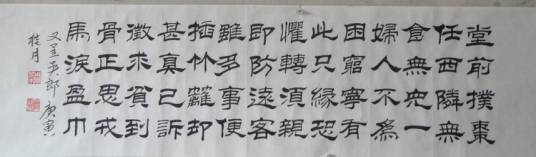 堂前撲棗
任西隣無
食無兒一
婦人不為
困窮寧有
此只緣恐
懼轉須親
即防遠客
雖多事便
插竹籬却
甚真已訴
徵求貧到
骨正思戎
馬淚盈巾
又呈吳郎 庚寅
桂月